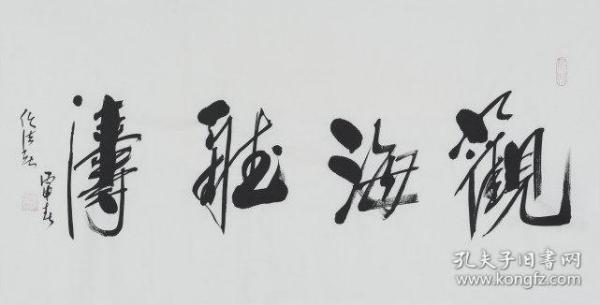 觀海聽濤
丙申春
孔夫子旧书网
www.kongfz.com